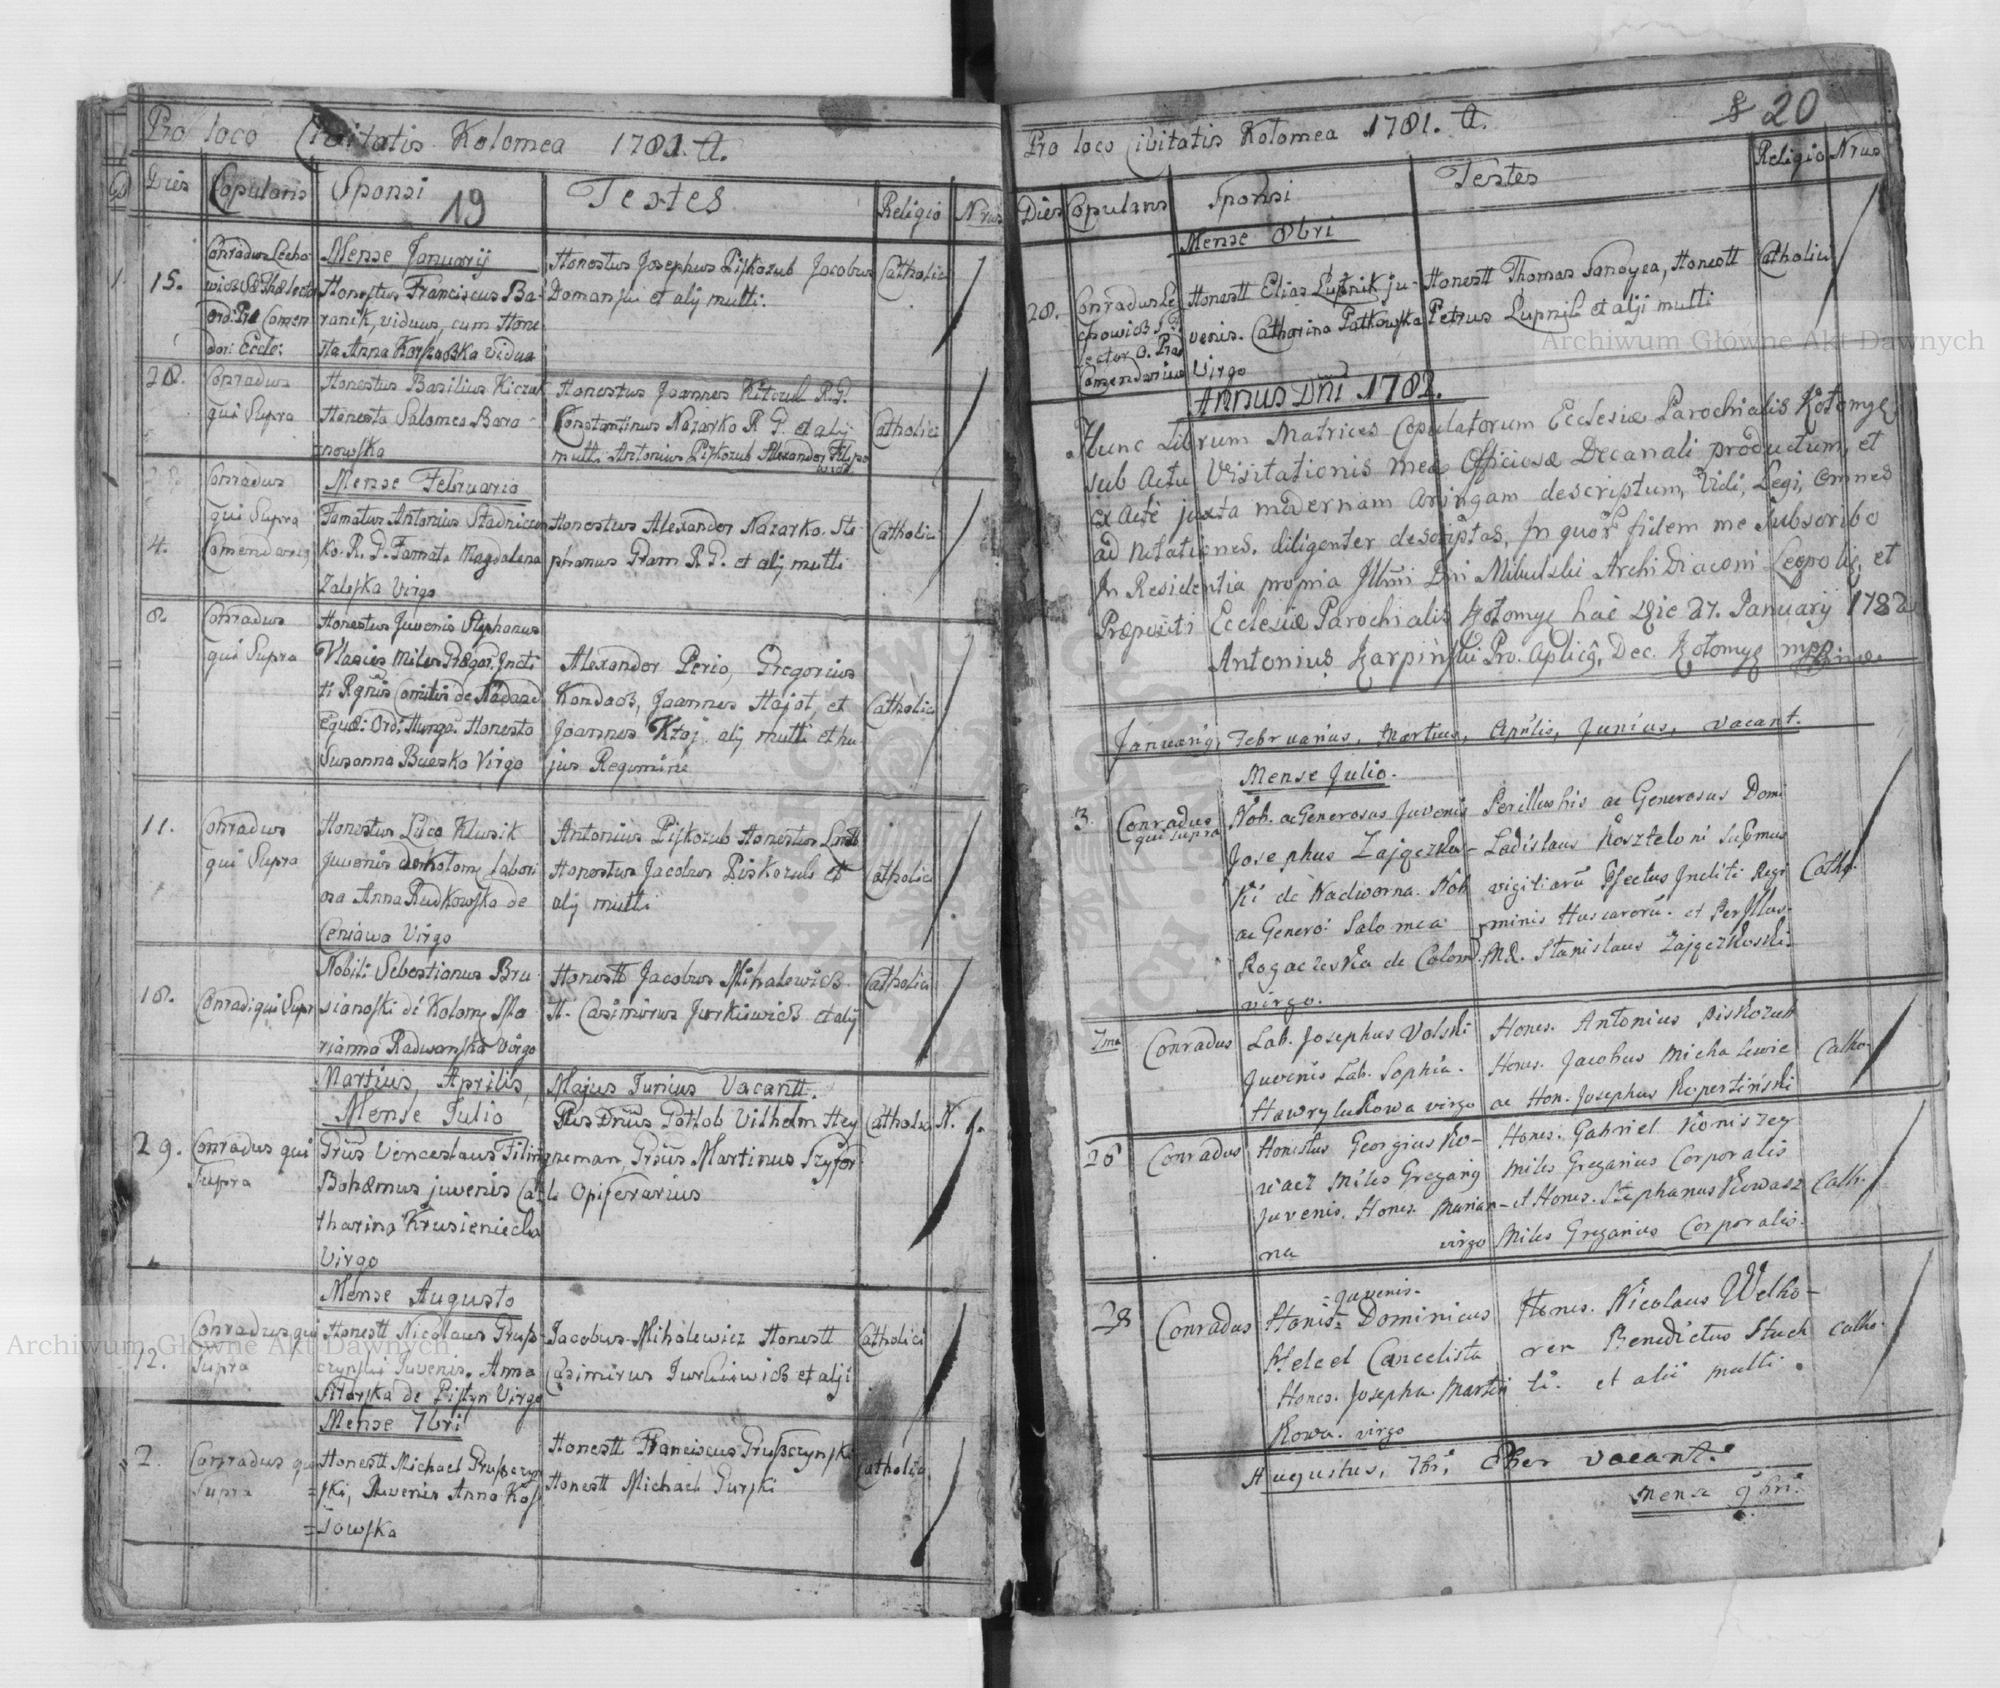 Pro loco Civitatis Kolomea 1781. A.
Dies Copulans Sponsi 19 Testes Religio Nrus
Mense Januarij
1. 15. Conradus Lecho-
Honestus Franciscus Ba-
ranik, viduus, cum Hone-
sta Anna vidua
Honestus Josephus Piskozub Jacobus
Domanski et alij multi.
Catholici
28. Conradus
qui Supra
Honestus Basilius Kiczak
Honesta Salomea Bara-
nowska
Honestus Joannes R. P.
Constantinus Nazarko R. P. et alij
multi Antonius Piskozub Alexander
Catholici
Mense Februario
4. Conradus
qui Supra
Comendarius
Famatus Antonius Stadnicen-
ko. R. P. Famata Magdalena
Zaleska Virgo
Honestus Alexander Nazarko. Ste-
phanus Pram R. P. et alij multi
Catholici
8. Conradus
qui Supra
Honestus Juvenis Stephanus
Vlasics Miles Gregar. Incli-
ti Rgnis Comitis de Nadasd
Equest: Ord: Hunga. Honesta
Susanna Buesko Virgo
Alexander Perio, Gregorius
Kondacs, Joannes Hajot, et
Joannes alij multi et hu-
jus Regimine
Catholici
11. Conradus
qui Supra
Honestus Luca Klusik
Juvenis de Kolomy Labori-
osa Anna Rudkowska de
Ceniawa Virgo
Antonius Piskozub Honestus
Honestus Jacobus Piskozub et
alij multi
Catholici
18. Conradi qui Supr
Nobili Sebestianus Bru-
sianoski de Kolomy Ma-
rianna Radwanska Virgo
Honestt Jacobus Mihalewicz
H. Casimirus Jurkiewicz et alij
Catholici
Martius, Aprilis, Majus Junius Vacantt.
Mense Julio
29. Conradus qui
Supra
Grūs Venceslaus Filin
Bohæmus juvenis Ca-
tharina Krusieniecka
Virgo
Drūs Gotlob Vilhelm Hey
neman, Grūs Martinus Szyfor
Opiferarius
Catholici N. 1.
Mense Augusto
12. Conradus qui
Supra
Honestt Nicolaus Grusz-
czynski Juvenis. Anna
Sitarska de Pistyn Virgo
Jacobus Mihalewicz Honestt
Casimirus Jurkiewicz et alji
Catholici
Mense 7bri
2. Conradus qui
Supra
Honestt Michael Gruszczyn
=ski, Juvenis Anna Kos
=sowska
Honestt Franciscus Gruszczynski
Honestt Michael Gurski
Catholici
Pro loco Civitatis Kolomea 1781. A.
20
Dies Copulans Sponsi Testes Religio Nrus
Mense 8bri
28. Conradus Le-
chowicz S. T.
Lector O. Præ
Comendarius
Honestt Elias Lupnik ju-
venis. Catharina Patkowska
Virgo
Honestt Thomas Sanoyca, Honestt
Petrus Lupnik et alji multi
Catholici
Annus Dni 1782.
Hunc Librum Matrices Copulatorum Ecclesiæ Parochialis Kołomyę
sub Actu Visitationis meæ Officiosæ Decanali productum, et
ex Acte juxta modernam descriptum, Vidi, Legi, omnes
ad notationes. diligenter descriptas, In quor fidem me Subscribo
In Residentia propria Illmi Dni Mikulski Archi Diaconi Leopolis, et
Præpositi Ecclesiæ Parochialis Kołomyę hac Die 27. Januarij 1782
Antonius Karpiński Pro. Aplicę, Dec. Kołomyę mpp
Januarij, Februarius, Martius, Aprilis, Junius, vacant.
Mense Julio.
3. Conradus
qui supra
Nob. ac Generosus Juvenis
Josephus Zajączkow-
ki de Nadworna. Nob
ac Genero: Salomea
Rogaczeska de Colom
virgo.
Perillustris ac Generosus Domi
Ladislaus Koszteloni Supmus
vigiliarū Pfectus Incliti Regi
minis Huscarorū. et Perillus-
M. D. Stanislaus Zajączkoski.
Catho.
7ma Conradus
Lab. Josephus Volski
Juvenis Lab. Sophia.
Hawrylukowa virgo
Hones. Antonius Piskozub
Hones. Jacobus Michalewic
ac Hon. Josephus Kopertiński
Catho-
26 Conradus
Honestus Georgius Ko-
vacz Miles Gregarij
Juvenis. Hones. Marian-
na virgo
Hones. Gabriel Koniszey
Miles Gregarius Corporalis
et Hones. Stephanus Kowasz
Miles Gregarius Corporalis.
Cath.
28 Conradus
=juvenis.
Honis= Dominicus
Cancelista
Hones. Josepha Martin
Kowa. virgo
Hones. Nicolaus Welko-
ren Benedictus Stuck
li. et alii multi.
Catho-
Augustus, 7bri, 8ber vacant.
Mense 9bri.
Archiwum Główne Akt Dawnych
Archiwum Główne Akt Dawnych